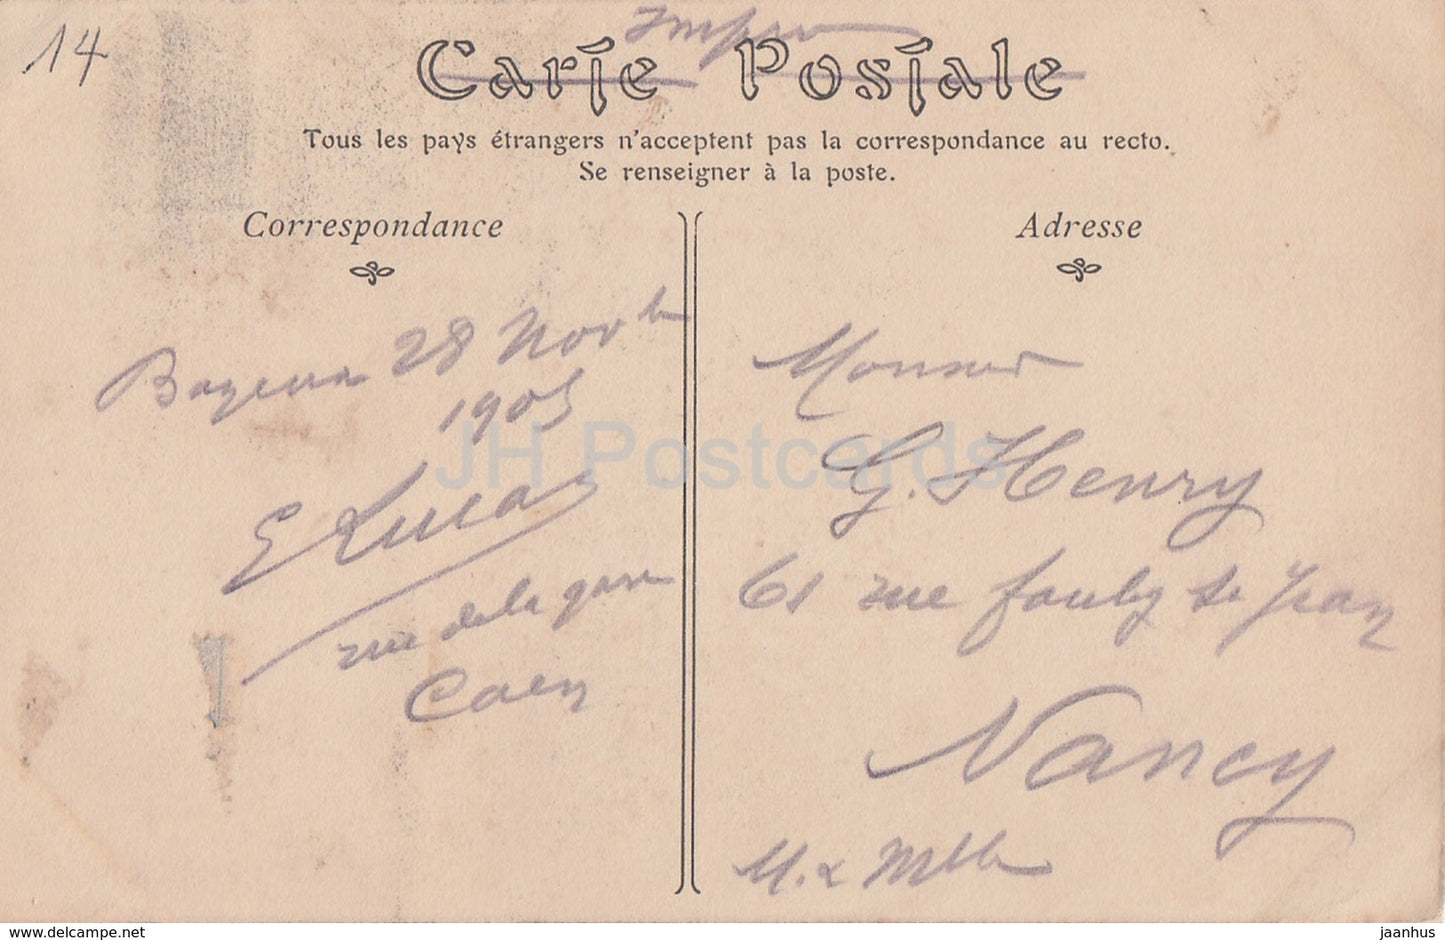 14
Carte Postale
Tous les pays étrangers n'acceptent pas la correspondance au recto.
Se renseigner à la poste.
Correspondance
28 Novb
1905
E Lucas
rue de la gare
Caen
Adresse
Monsieur
G. Henry
61 rue faubg St Jean
Nancy
JH Postcards
www.delcampe.net
jaanhus